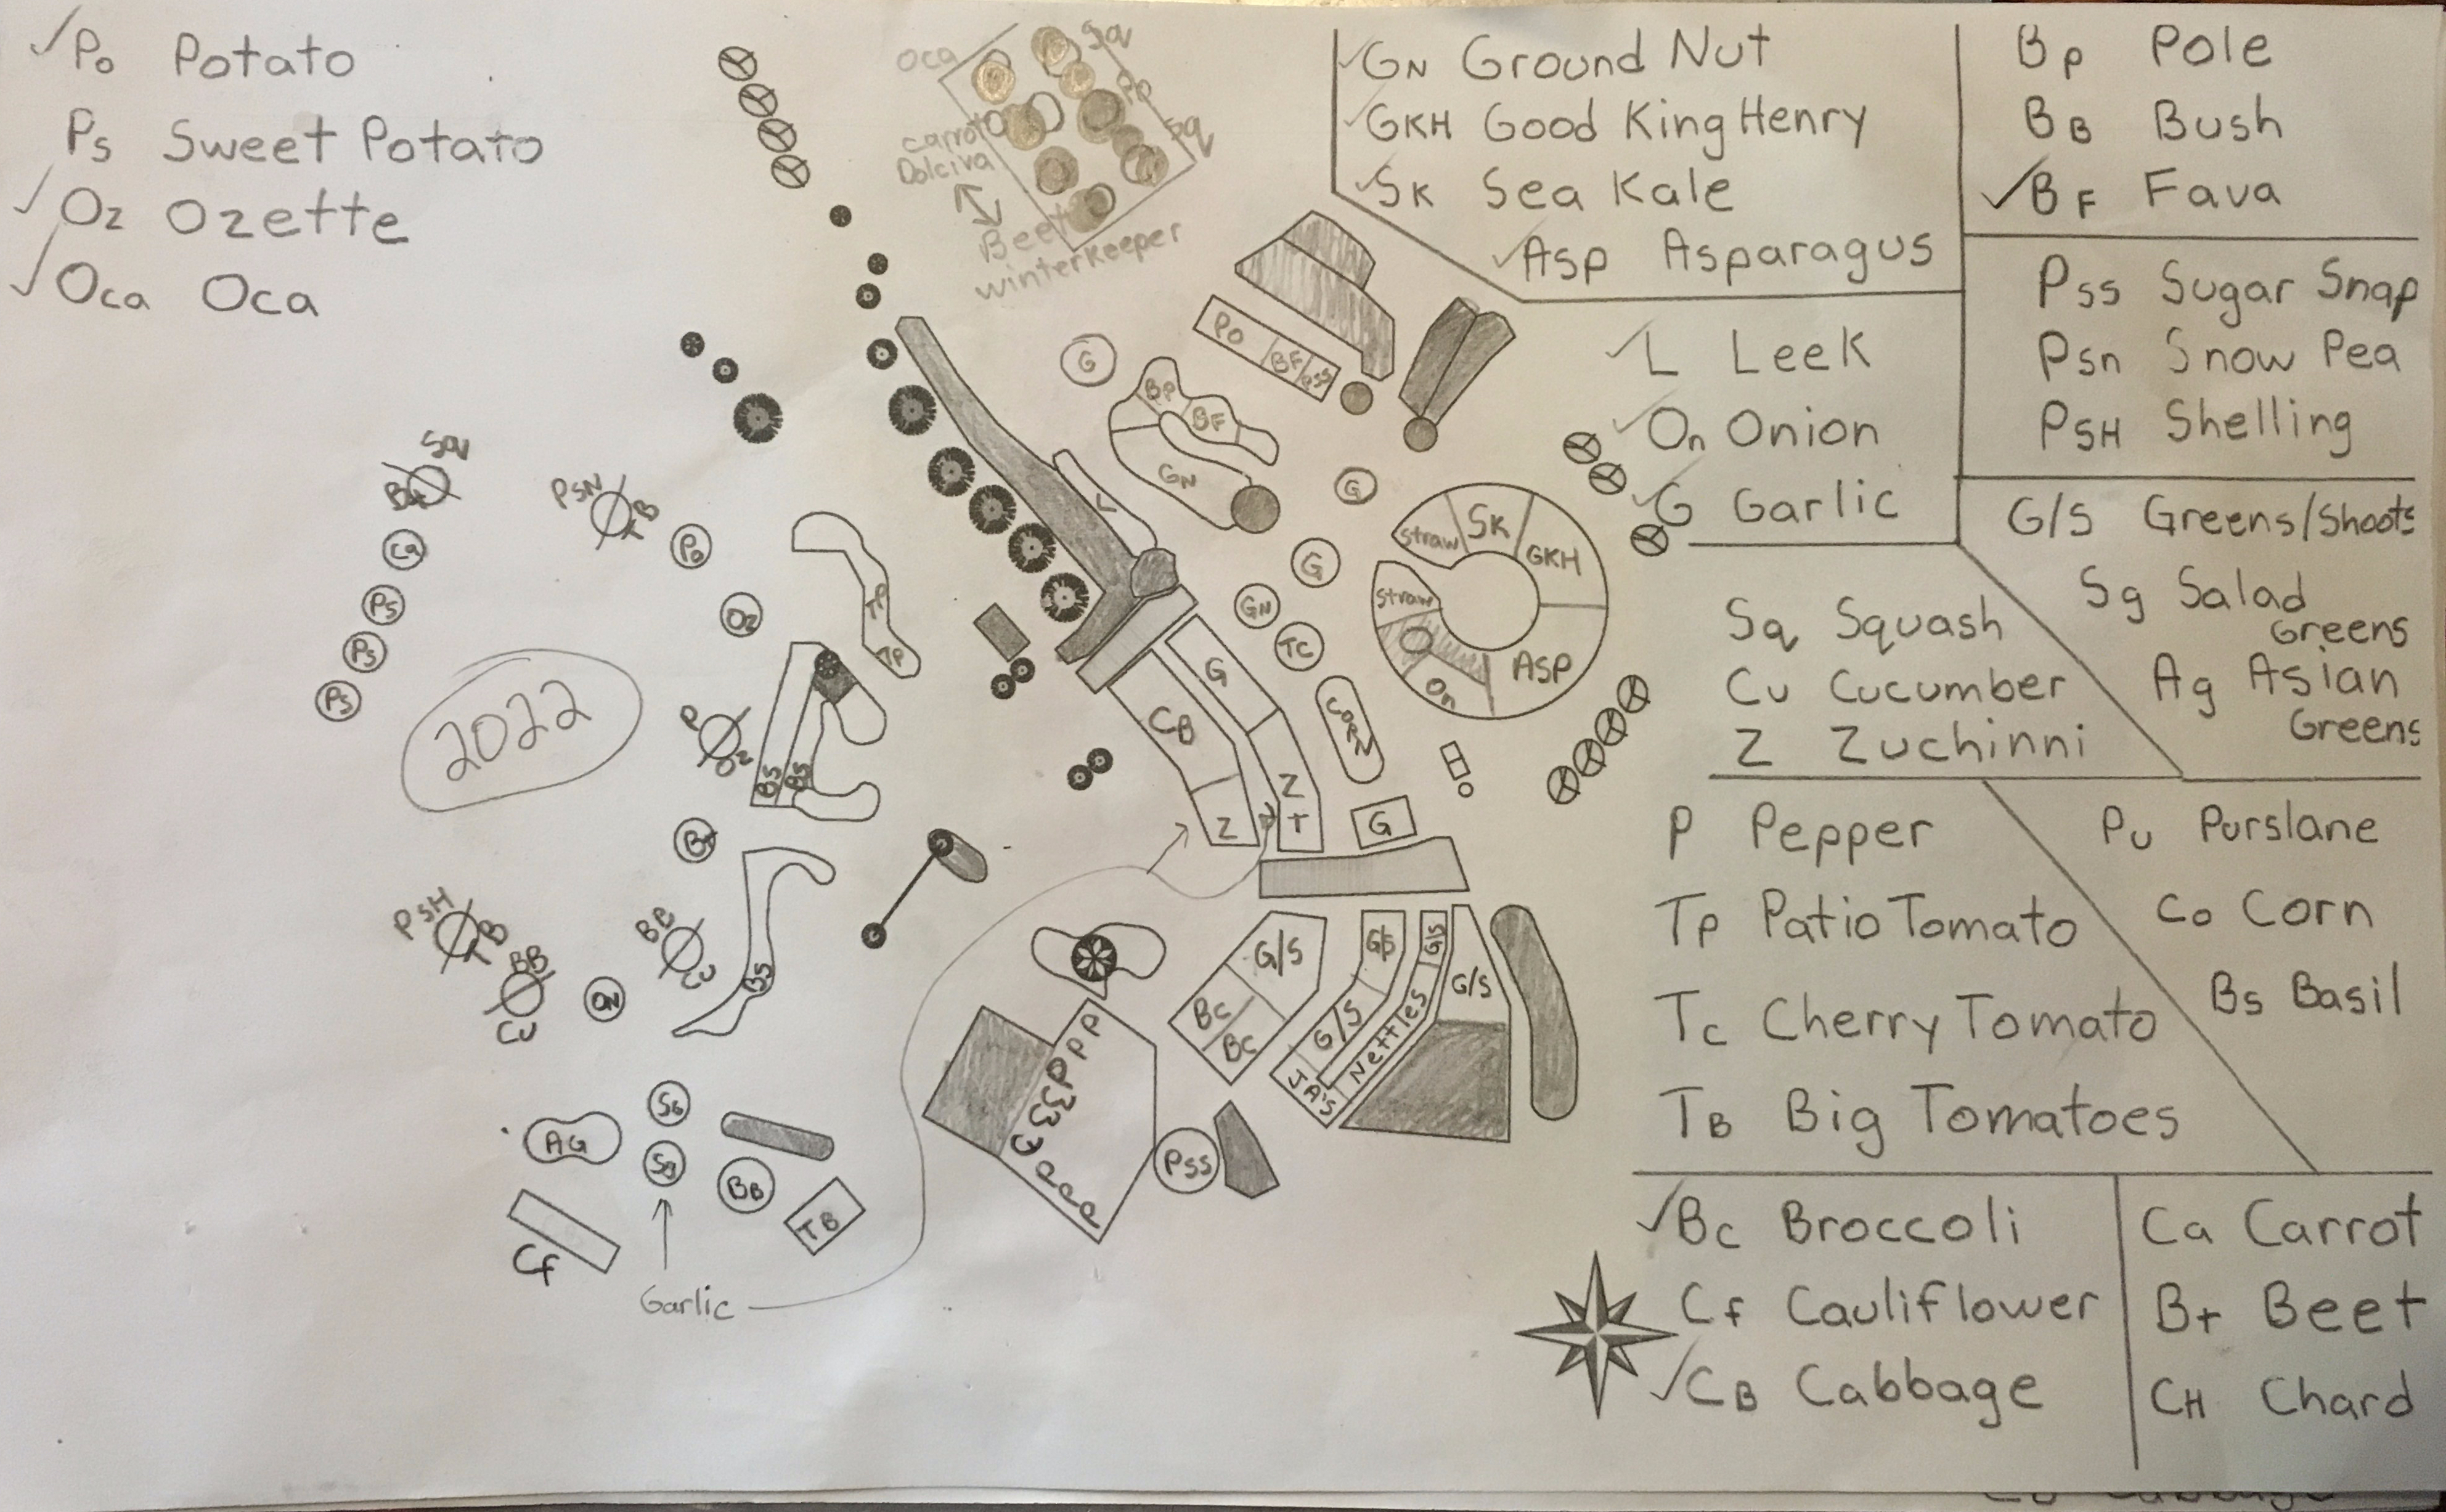 ✓Po Potato
Ps Sweet Potato
✓Oz Ozette
✓Oca Oca
Oca
Sq
Pp
Sq
carrot
Dolciva
Beet
winterkeeper
✓GN Ground Nut
✓GKH Good King Henry
✓SK Sea Kale
✓Asp Asparagus
Bp Pole
BB Bush
✓BF Fava
Pss Sugar Snap
Psn Snow Pea
PSH Shelling
✓L Leek
✓On Onion
✓G Garlic
G/S Greens/Shoots
Sg Salad
Greens
Ag Asian
Greens
Sq Squash
Cu Cucumber
Z Zuchinni
P Pepper
Tp Patio Tomato
Tc Cherry Tomato
TB Big Tomatoes
Pu Purslane
Co Corn
Bs Basil
✓Bc Broccoli
Cf Cauliflower
✓CB Cabbage
Ca Carrot
Bt Beet
CH Chard
PO
BF
PSS
G
BP
BF
GN
L
G
G
GN
TC
Straw
SK
GKH
Straw
O
On
ASP
G
CB
CORN
Z
Z
T
G
Sq
Bt
Ca
Ps
Ps
Ps
PSN
TB
Po
Oz
TP
TP
2022
P
Oz
BS
BS
Bt
PSH
TB
BB
Cu
ON
BB
Cu
BS
AG
SG
SG
BB
TB
Cf
Garlic
P P P
P
P P P P
PSS
G/S
Bc
Bc
G/S
G/S
G/S
G/S
Nettles
JA'S